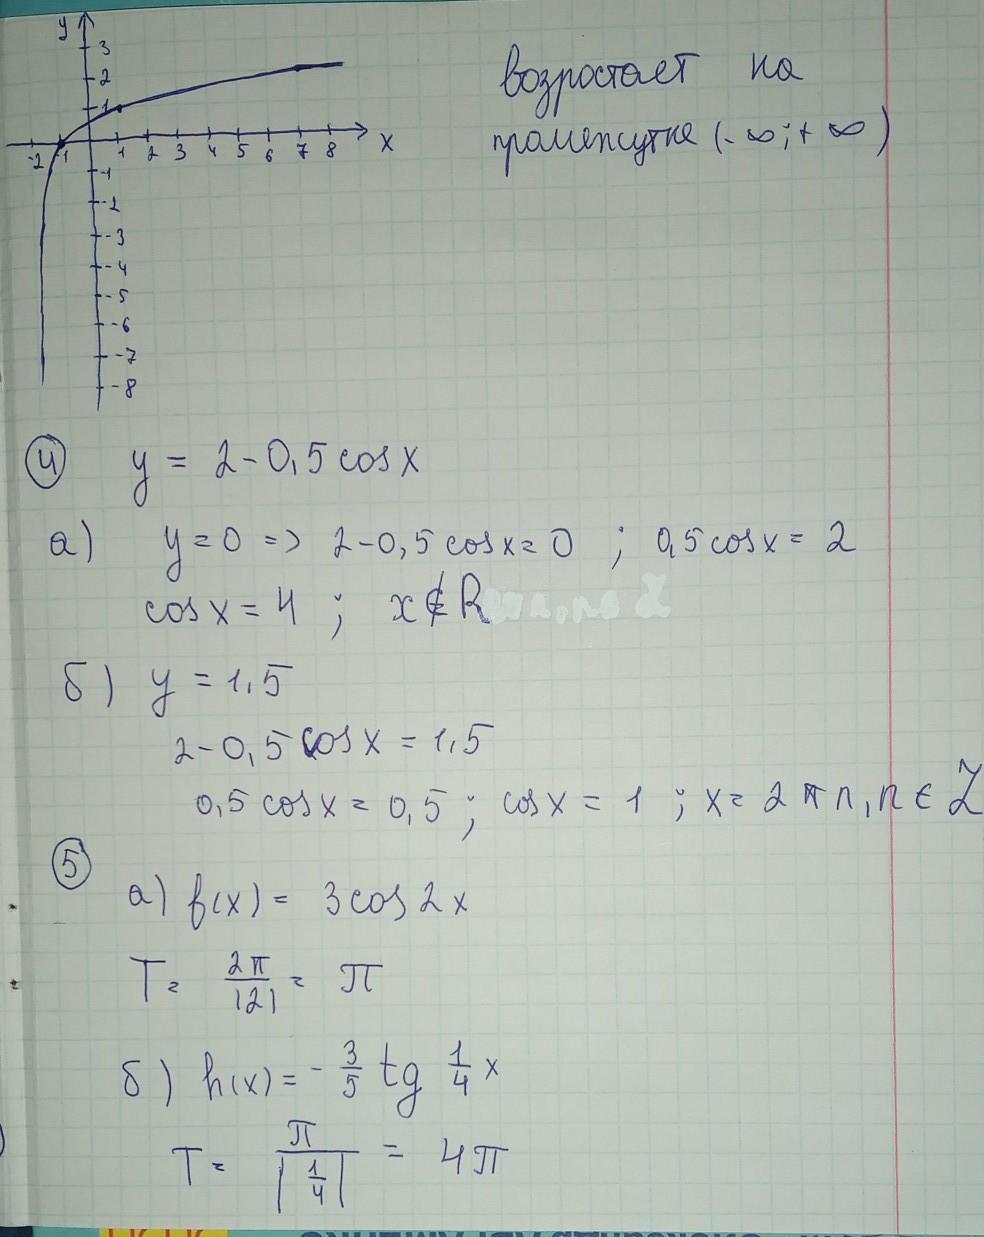 y
3
2
1
-2 -1 1 2 3 4 5 6 7 8 x
-1
-2
-3
-4
-5
-6
-7
-8
возростает на
промежутке (-∞;+∞)
④ y = 2-0,5cosx
а) y=0 => 2-0,5cosx=0 ; 0,5cosx=2
cosx=4 ; x∉R
б) y=1,5
2-0,5cosx=1,5
0,5cosx=0,5; cosx=1 ; x=2πn, n∈Z
⑤
а) f(x)= 3cos2x
T= 2π/|2| = π
б) h(x)= -3/5 tg 1/4 x
T= π/|1/4| = 4π